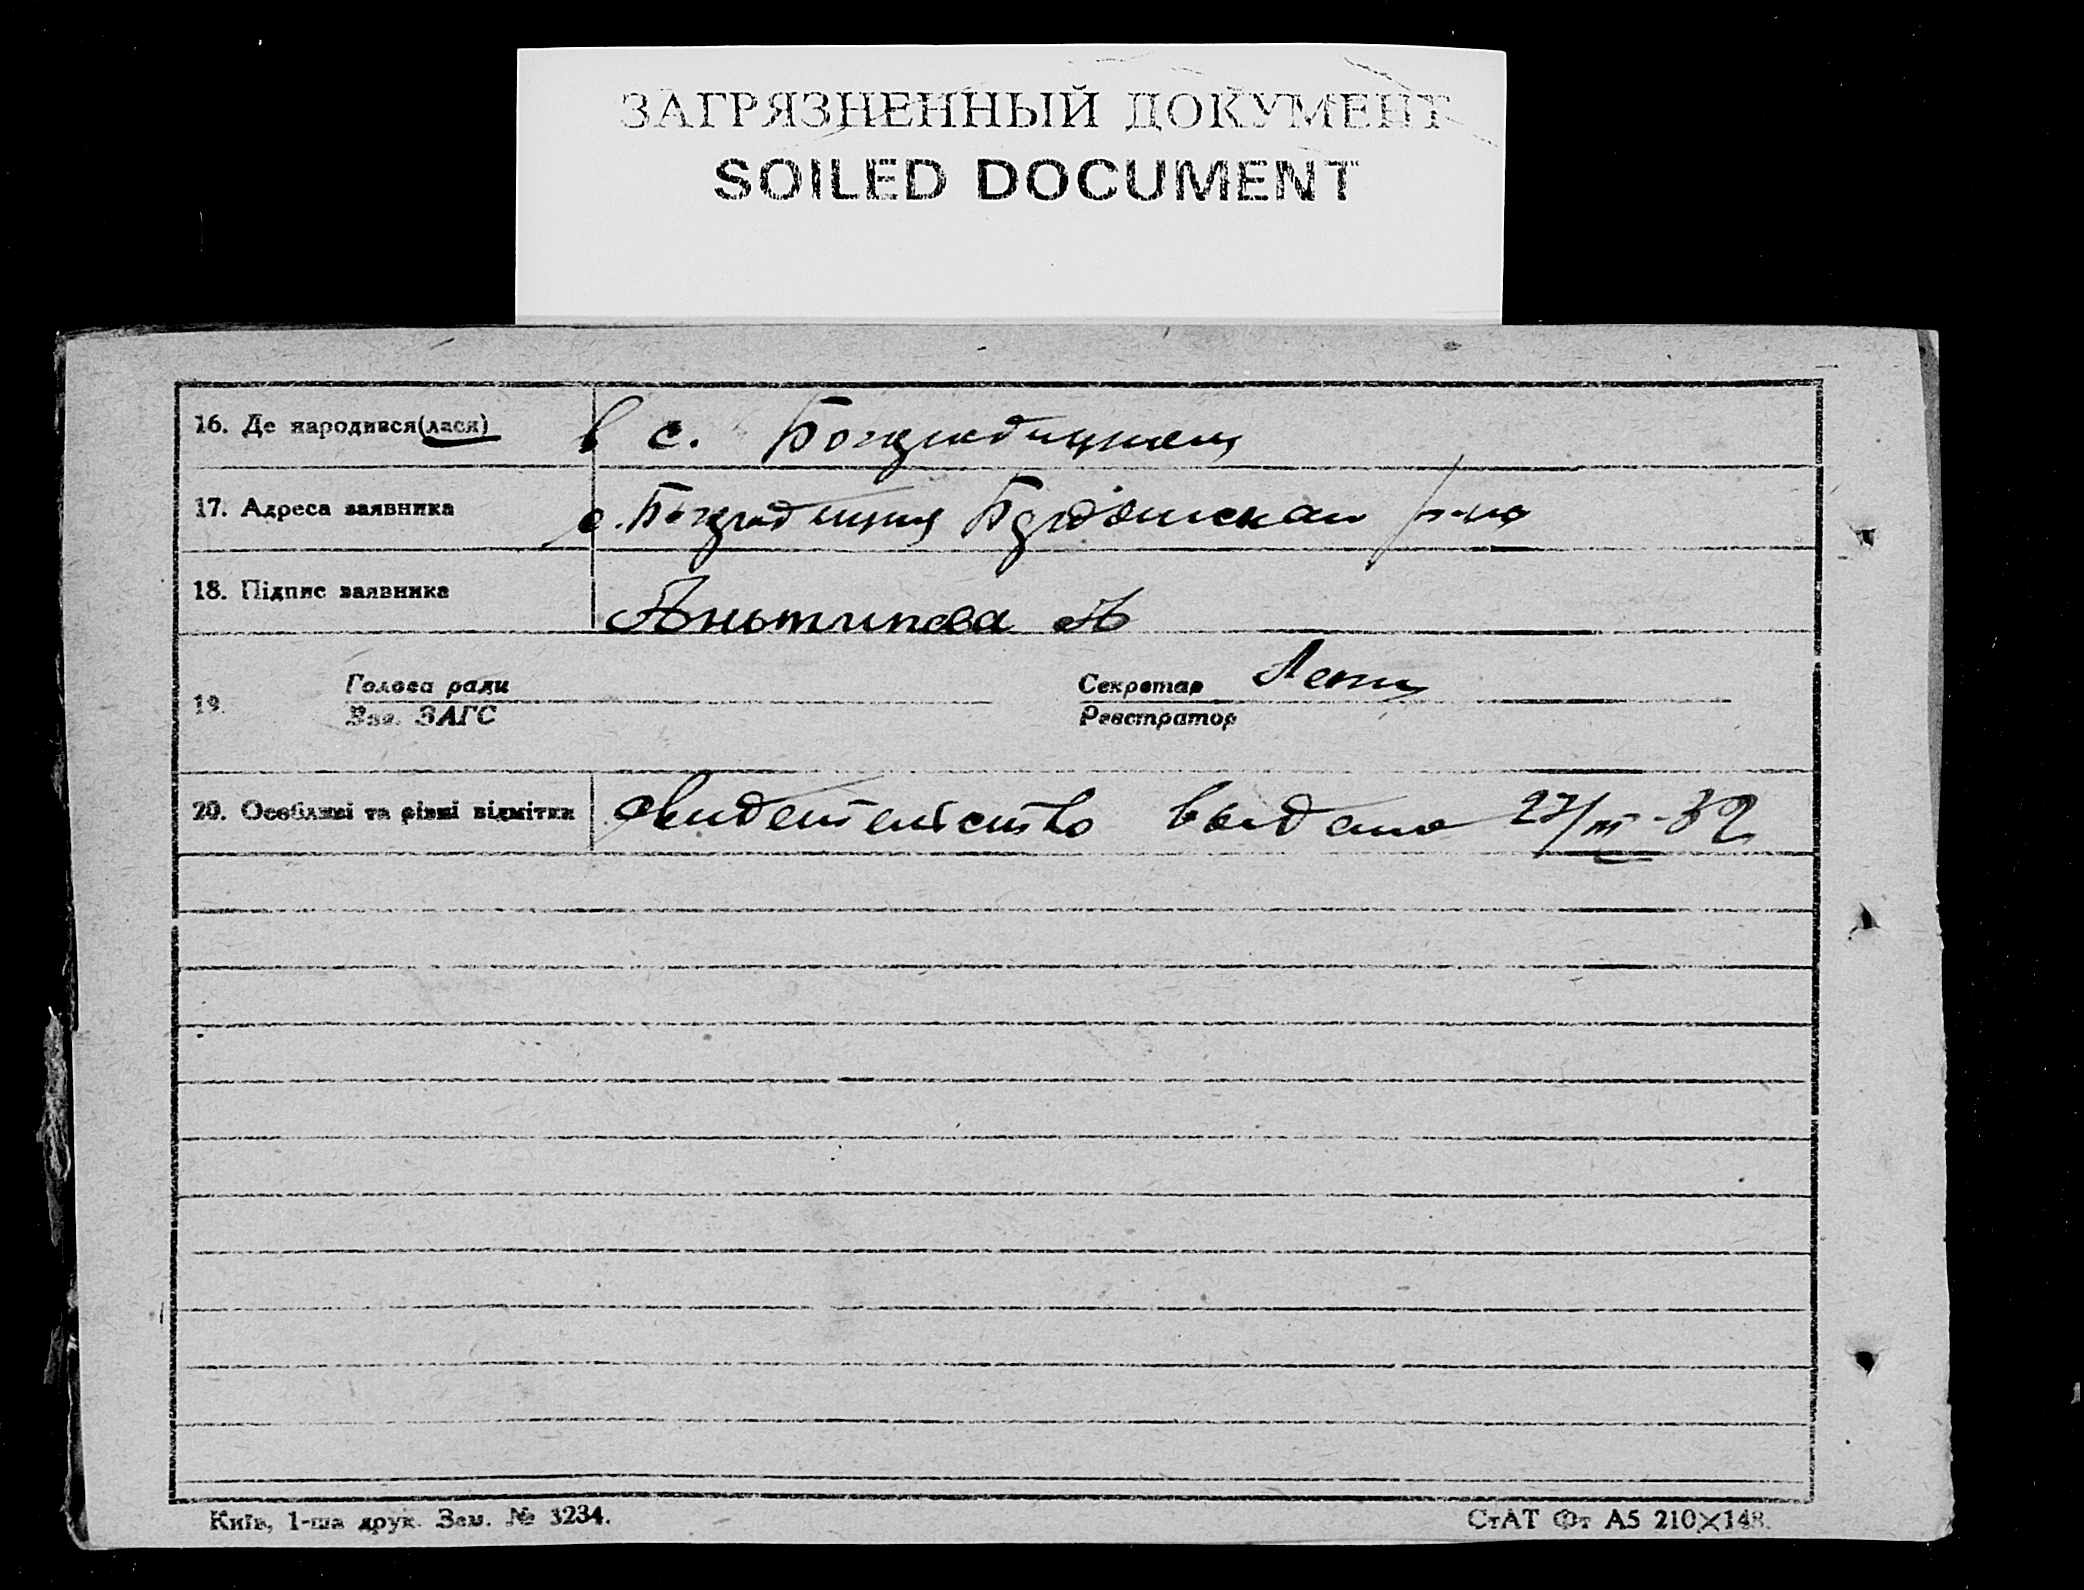 ЗАГРЯЗНЕННЫЙ ДОКУМЕНТ
SOILED DOCUMENT
16. Де народився(лася) в с.
17. Адреса заявника с. р-на
18. Підпис заявника Аньтипова А
Голова ради Секретар
19.
Зав. ЗАГС Реєстратор
20. Особливі та різні відмітки свидетельство выдано 27/III-32
Київ, 1-ша друк. Зам. № 3234. СтАТ Фт А5 210×148.